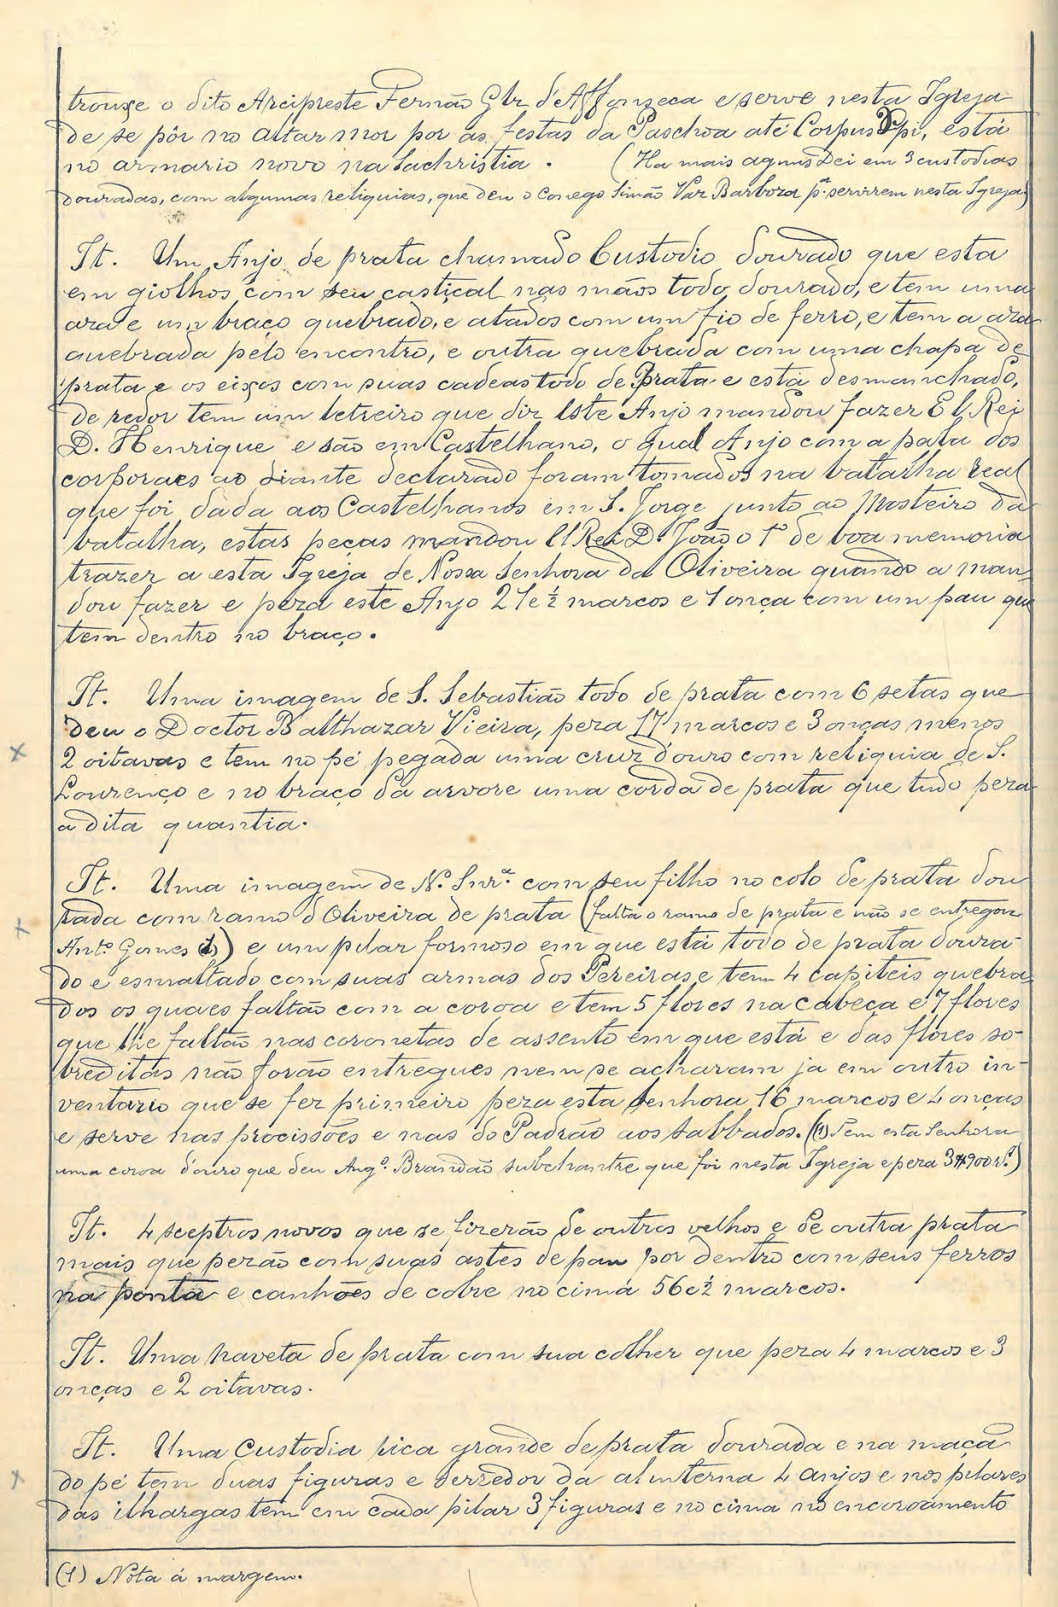 trouxe o dito Arcipreste Fernão Glz d'Affonseca e serve nesta Igreja
de se pôr no altar mor por as festas da Paschoa até Corpus Xpi, está
no armario novo na Sachristia. (Ha mais agnus Dei em 3 custodias
douradas, com algumas reliquias, que deu o Conego Simão Vaz Barboza pª servirem nesta Igreja)
It. Um Anjo de prata chamado Custodio dourado que esta
em giolhos com seu castiçal nas mãos todo dourado, e tem uma
aza e um braço quebrado, e atados com um fio de ferro, e tem a aza
quebrada pelo encontro, e outra quebrada com uma chapa de
prata e os eixos com suas cadeas todo de Prata e está desmanchado,
de redor tem um letreiro que diz Este Anjo mandou fazer El Rei
D. Henrique e são em Castelhano, o qual Anjo com a pala dos
corporaes ao diante declarado foram tomados na batalha real
que foi dada aos Castelhanos em S. Jorge junto ao Mosteiro da
batalha, estas peças mandou El Rei D. João o 1º de boa memoria
trazer a esta Igreja de Nossa Senhora da Oliveira quando a man-
dou fazer e peza este Anjo 21 e ½ marcos e 1 onça com um pau que
tem dentro no braço.
It. Uma imagem de S. Sebastião todo de prata com 6 setas que
deu o Doctor Balthazar Vieira, peza 17 marcos e 3 onças menos
2 oitavas e tem no pé pegada uma cruz d'ouro com reliquia de S.
Lourenço e no braço da arvore uma corda de prata que tudo peza
a dita quantia.
It. Uma imagem de N. Snrª com seu filho no colo de prata dou
rada com ramo d'Oliveira de prata (falta o ramo de prata e não se entregou
Antº Gomes (1)) e um pilar formoso em que está todo de prata doura-
do e esmaltado com suas armas dos Pereiras e tem 4 capiteis quebra-
dos os quaes faltão com a coroa e tem 5 flores na cabeça e 7 flores
que lhe faltão nas coronetas de assento em que está e das flores so-
breditas não forão entregues nem se acharam ja em outro in-
ventario que se fez primeiro peza esta Senhora 16 marcos e 4 onças
e serve nas procissões e nas do Padrão aos sabbados. ((1) Tem esta Senhora
uma coroa d'ouro que deu Angº Brandão subchantre que foi nesta Igreja e peza 3#900 rs.)
It. 4 sceptros novos que se fizerão de outros velhos e de outra prata
mais que pezão com suas astes de pau por dentro com seus ferros
na ponta e canhões de cobre no cimá 56 e ½ marcos.
It. Uma naveta de prata com sua colher que peza 4 marcos e 3
onças e 2 oitavas.
It. Uma Custodia rica grande de prata dourada e na maçã
do pé tem duas figuras e derredor da alinterna 4 anjos e nos pilares
das ilhargas tem em cada pilar 3 figuras e no cima no encoroamento
(1) Nota á margem.